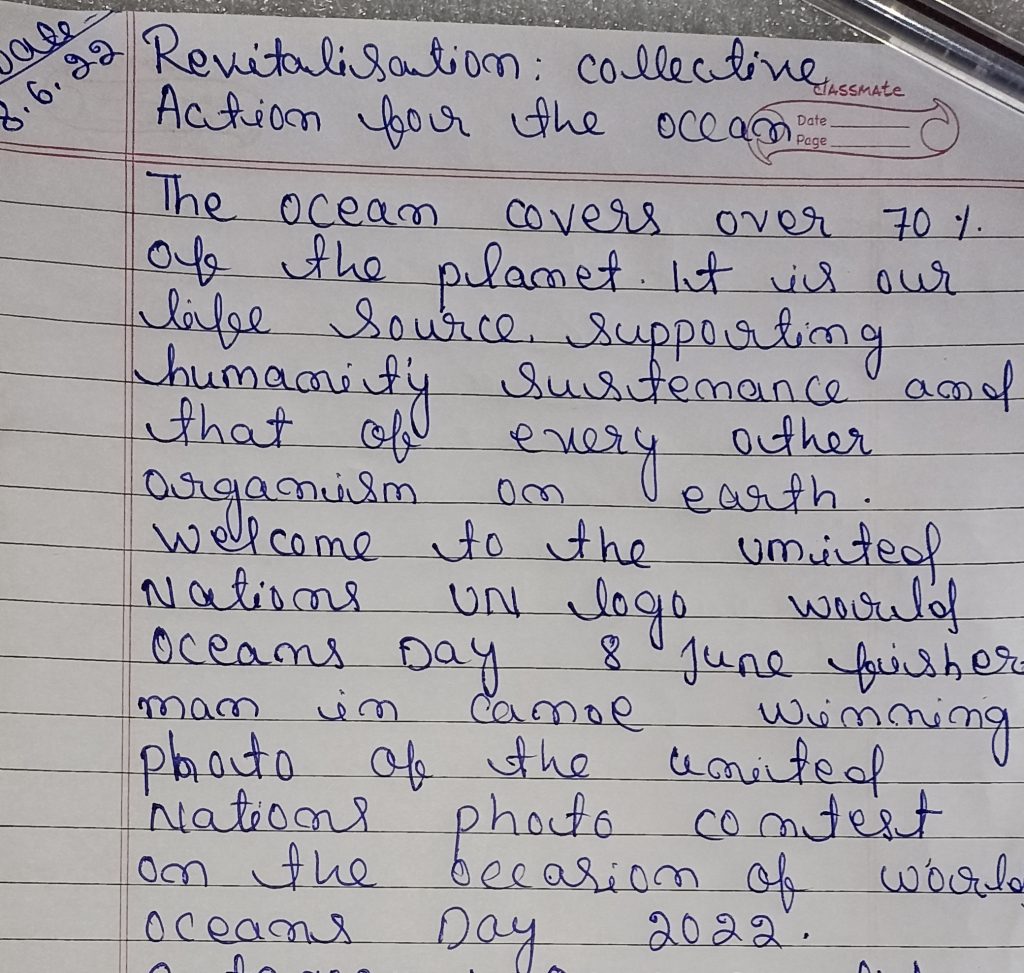 Date
8.6.22
Revitalisation: collective
Action for the ocean
CLASSMATE
Date
Page
The ocean covers over 70 %.
of the planet. It is our
life source, supporting
humanity sustenance and
that of every other
organism on earth.
welcome to the united
Nations UN logo world
oceans Day 8 June fisher
man in canoe winning
photo of the united
Nations photo contest
on the occasion of world
oceans Day 2022.